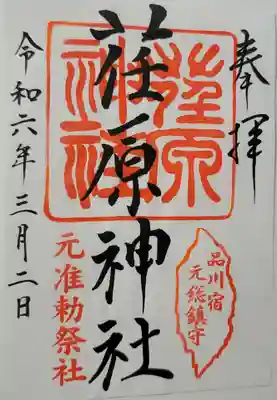 奉拝
荏原神社
荏原神社
品川宿
元総鎮守
元准勅祭社
令和六年三月二日